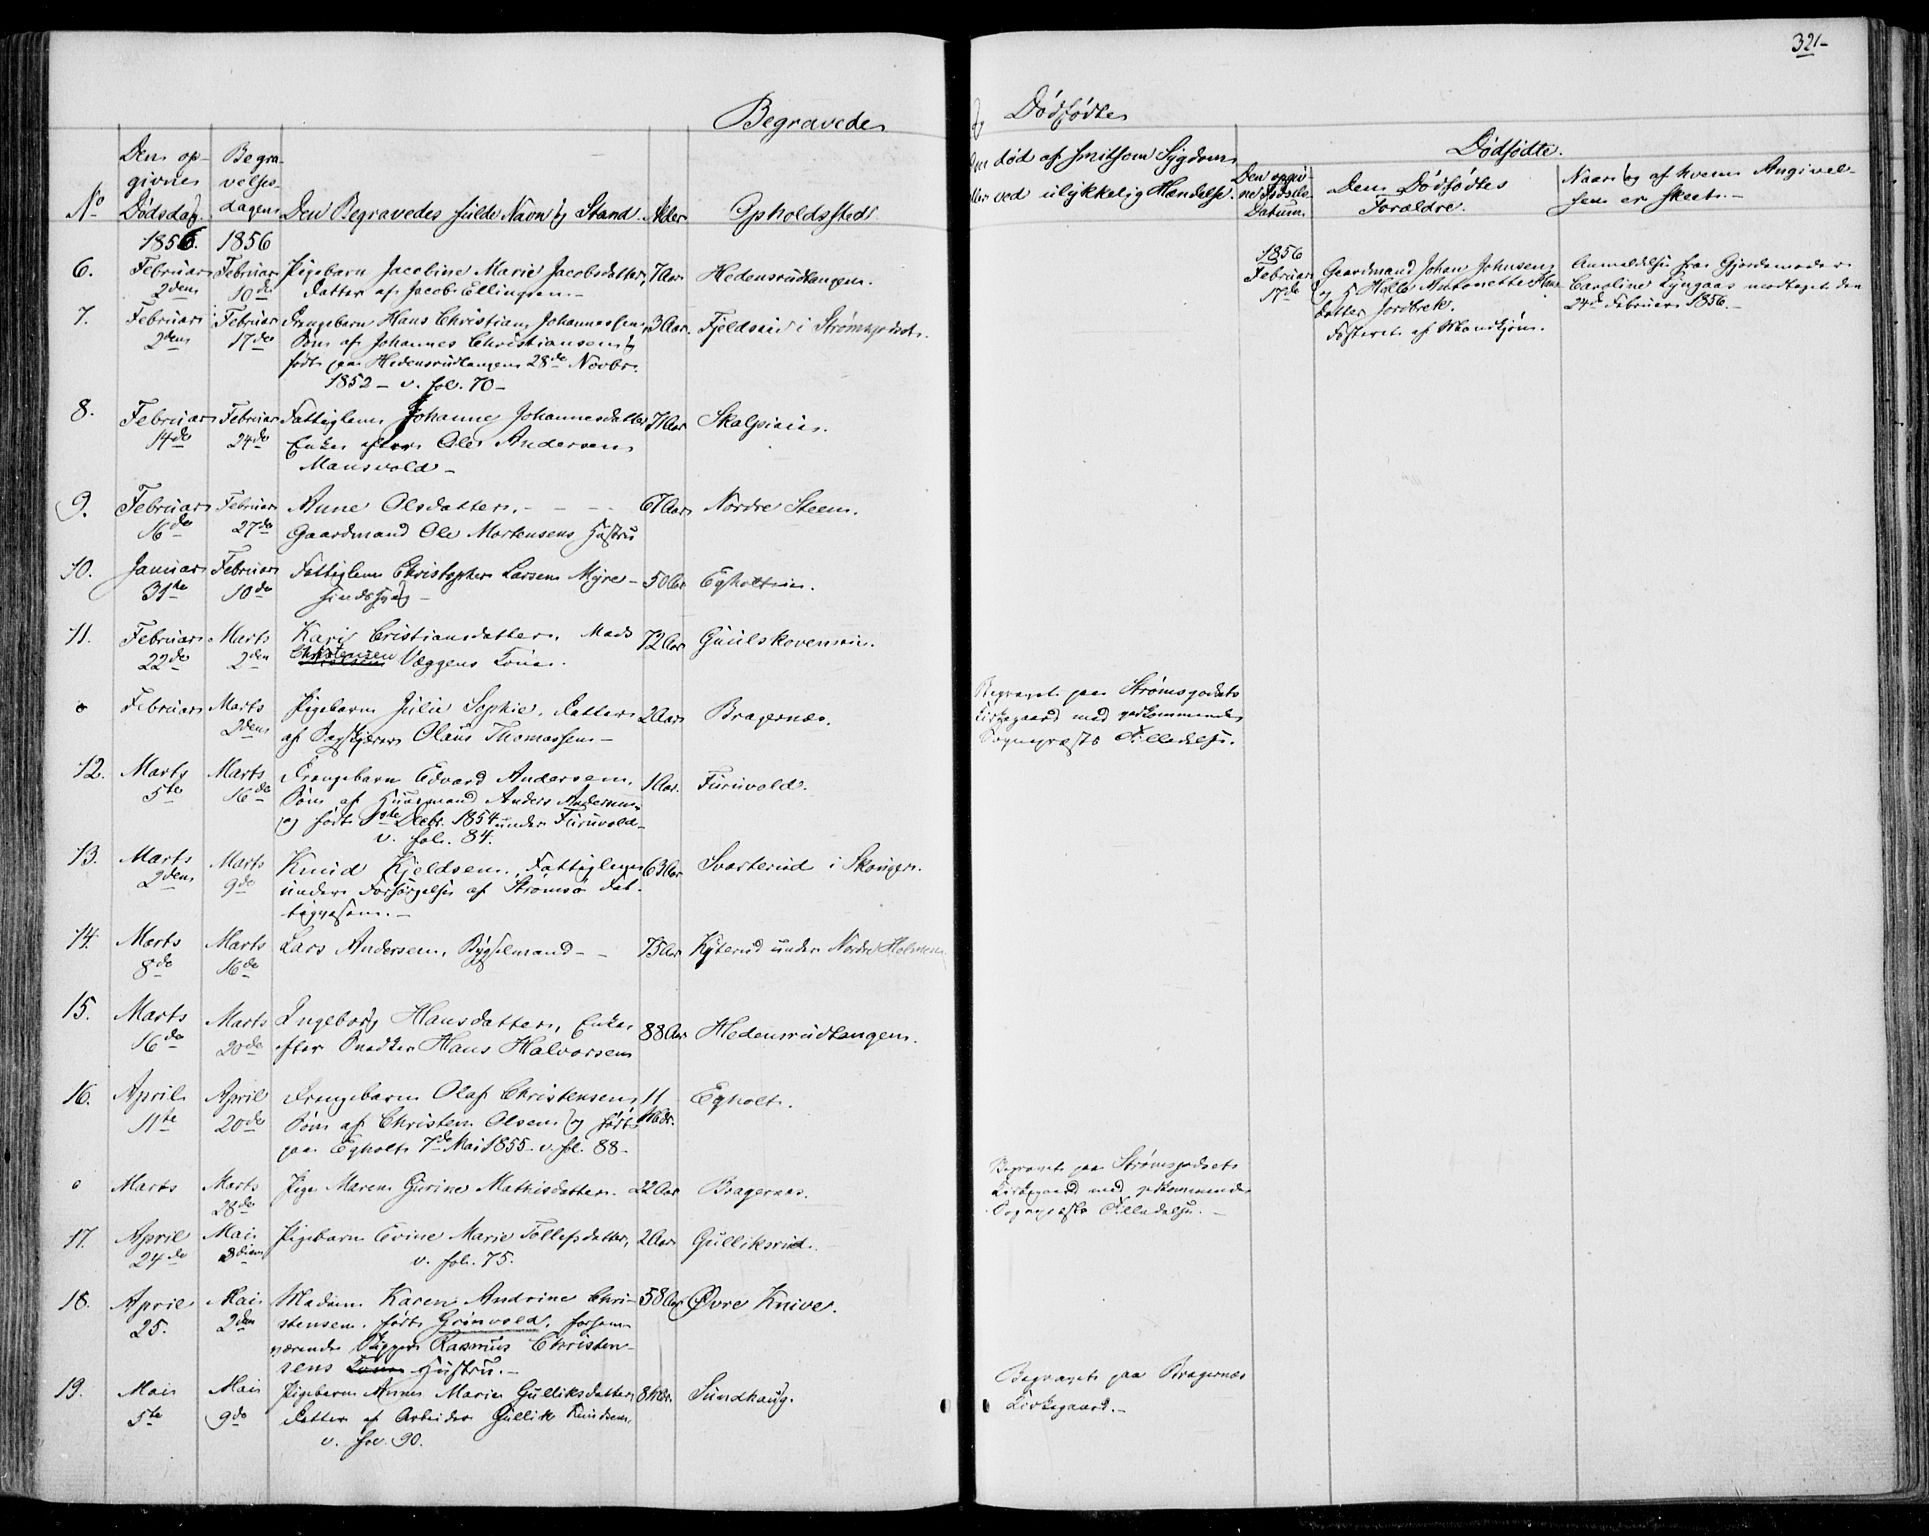 321-
Begravede og Dødfødte
No
Den opgivne Dødsdag.
Begravelsesdagen
Den Begravedes fulde Navn og Stand.
Alder
Opholdssted
død af smitsom Sygdom
ved ulykkelig Hændelse.
Dødfødte.
Den opgivne Fødsels Datum
Den Dødfødtes Forældre.
Naar og af hvem Angivelsen er skeet.
1856. 1856
6. Februar 2den Februar 10de Pigebarn Jacobine Marie Jacobsdatter, 7 Aar Hedensrudtangen.
Datter af Jacob Ellingsen.
7. Februar 2den Februar 17de Drengebarn Hans Christian Johannessen, 3 Aar. Fjeldseie i Strømsgodset.
Søn af Johannes Christiansen og
født paa Hedensrudtangen 28de Novbr.
1852 - v. fol. 70 -
8. Februar 14de Februar 24de Fattiglem Johanne Johannesdatter 71 Aar
Enke efter Ole Andersen
Mansvold -
9. Februar 16de Februar 27de Anne Olsdatter. - - - 67 Aar Nordre Steen.
Gaardmand Ole Mortensens Hustru
10. Januar 31te Februar 10de Fattiglem Christopher Larsen Myre - 50 Aar Egholteie.
sindssyg -
11. Februar 22de Marts 2den Kari Cristiansdatter, Mads 72 Aar
Christensen Væggens Kone.
o Februar Marts 2den Pigebarn Julie Sophie, Datter 2 Aar Bragernæs.
af Olaus Thomassen -
12. Marts 5te Marts 16de Drengebarn Edvard Andersen, 1 Aar. Furuvold.
Søn af Huusmand Anders Andersen
og født Decbr. 1854 under Furuvold -
v. fol. 84.
13. Marts 2den Marts 9de Knud Kjeldsen, Fattiglem 63 Aar Svarterud i Skouger.
under Forsørgelse af Strømsø Fattigvæsen. -
14. Marts 8de Marts 16de Lars Andersen, Bygselmand - - 75 Aar Kyterud under Nordre Holmen
15. Marts 16de Marts 20de Ingeborg Hansdatter, Enke 88 Aar Hedensrudtangen.
efter Snedker Hans Halvorsen
16. April 11te April 20de Drengebarn Olaf Christensen 11 Mdr. Egholt.
Søn af Christen Olsen og født
paa Egholt 7de Mai 1855 - v. fol. 88 -
o Marts Marts 28de Pige Maren Gurine Mathisdatter. 22 Aar Bragernæs.
17. April 24de Mai Pigebarn Evine Marie Tollefsdatter, 2 Aar Gulliksrud.
v. fol. 75.
18. April 25. Mai 2den Madam Karen Andrine Christensen, 58 Aar Øvre Knive.
født Grønvold, forhenværende
Skipper Rasmus Christensens
Kone Hustru. -
19. Mai 5te Mai 9de Pigebarn Anne Marie Gulliksdatter 8 Mdr. Sundhaug.
Datter af Arbeider Gullik Knudsen,
v. fol. 90.
1856
Februar 17de
Gaardmand Johan Johnsen
og H Helle Antonette
datter Jordbrek.
Fosteret af Mandkjøn.
Anmeldelse fra Gjordemoder
Caroline Lyngaas modtaget den
24de Februar 1856. -
Begravet paa Strømsgodsets
Kirkegaard med vedkommende
Sognepræsts Tilladelse.
Begravet paa Strømsgodsets
Kirkegaard med vedkommende
Sognepræsts Tilladelse. -
Begravet paa Bragernæs
Kirkegaard. -